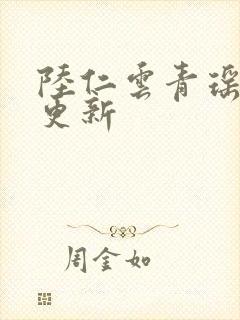 陸仁雲青瑶
更新
周金如